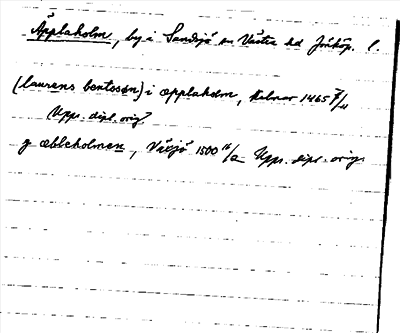 Äpplaholm, by i Sandsjö sn Västra hd Jönköp. l.
(laurens bentsson) i æpplaholm, Kalmar 1465 7/11
Upps. dipl. orig.
g æbleholmen, Växjö 1500 16/2 Upps. dipl. orig.